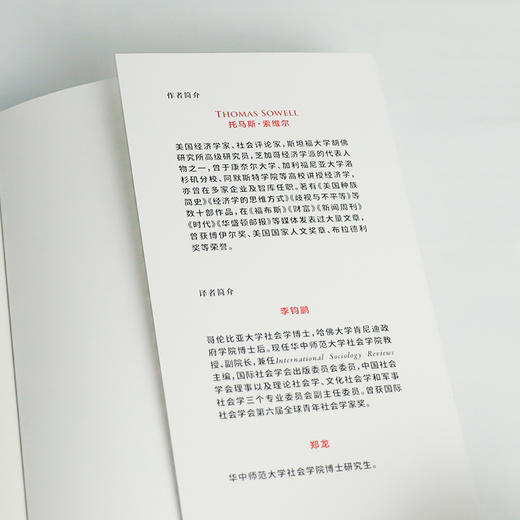 作者简介
THOMAS SOWELL
托马斯·索维尔
美国经济学家、社会评论家，斯坦福大学胡佛
研究所高级研究员，芝加哥经济学派的代表人
物之一，曾于康奈尔大学、加利福尼亚大学洛
杉矶分校、阿默斯特学院等高校讲授经济学，
亦曾在多家企业及智库任职。著有《美国种族
简史》《经济学的思维方式》《歧视与不平等》等
数十部作品，在《福布斯》《财富》《新闻周刊》
《时代》《华盛顿邮报》等媒体发表过大量文章，
曾获博伊尔奖、美国国家人文奖章、布拉德利
奖等荣誉。
译者简介
李钧鹏
哥伦比亚大学社会学博士，哈佛大学肯尼迪政
府学院博士后。现任华中师范大学社会学院教
授、副院长，兼任International Sociology Reviews
主编，国际社会学会出版委员会委员，中国社会
学会理事以及理论社会学、文化社会学和军事
社会学三个专业委员会副主任委员。曾获国际
社会学会第六届全球青年社会学家奖。
郑龙
华中师范大学社会学院博士研究生。